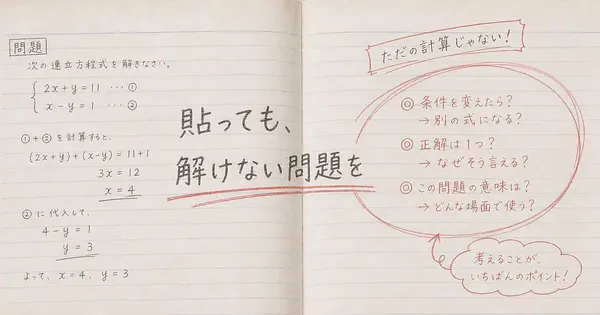 問題
次の連立方程式を解きなさい。
2x+y=11 … ①
x-y=1 … ②
①+②を計算すると、
(2x+y)+(x-y)=11+1
3x=12
x=4
②に代入して、
4-y=1
y=3
よって、x=4, y=3
貼っても、
解けない問題を
ただの計算じゃない！
◎ 条件を変えたら？
→ 別の式になる？
◎ 正解は1つ？
→ なぜそう言える？
◎ この問題の意味は？
→ どんな場面で使う？
考えることが、
いちばんのポイント！